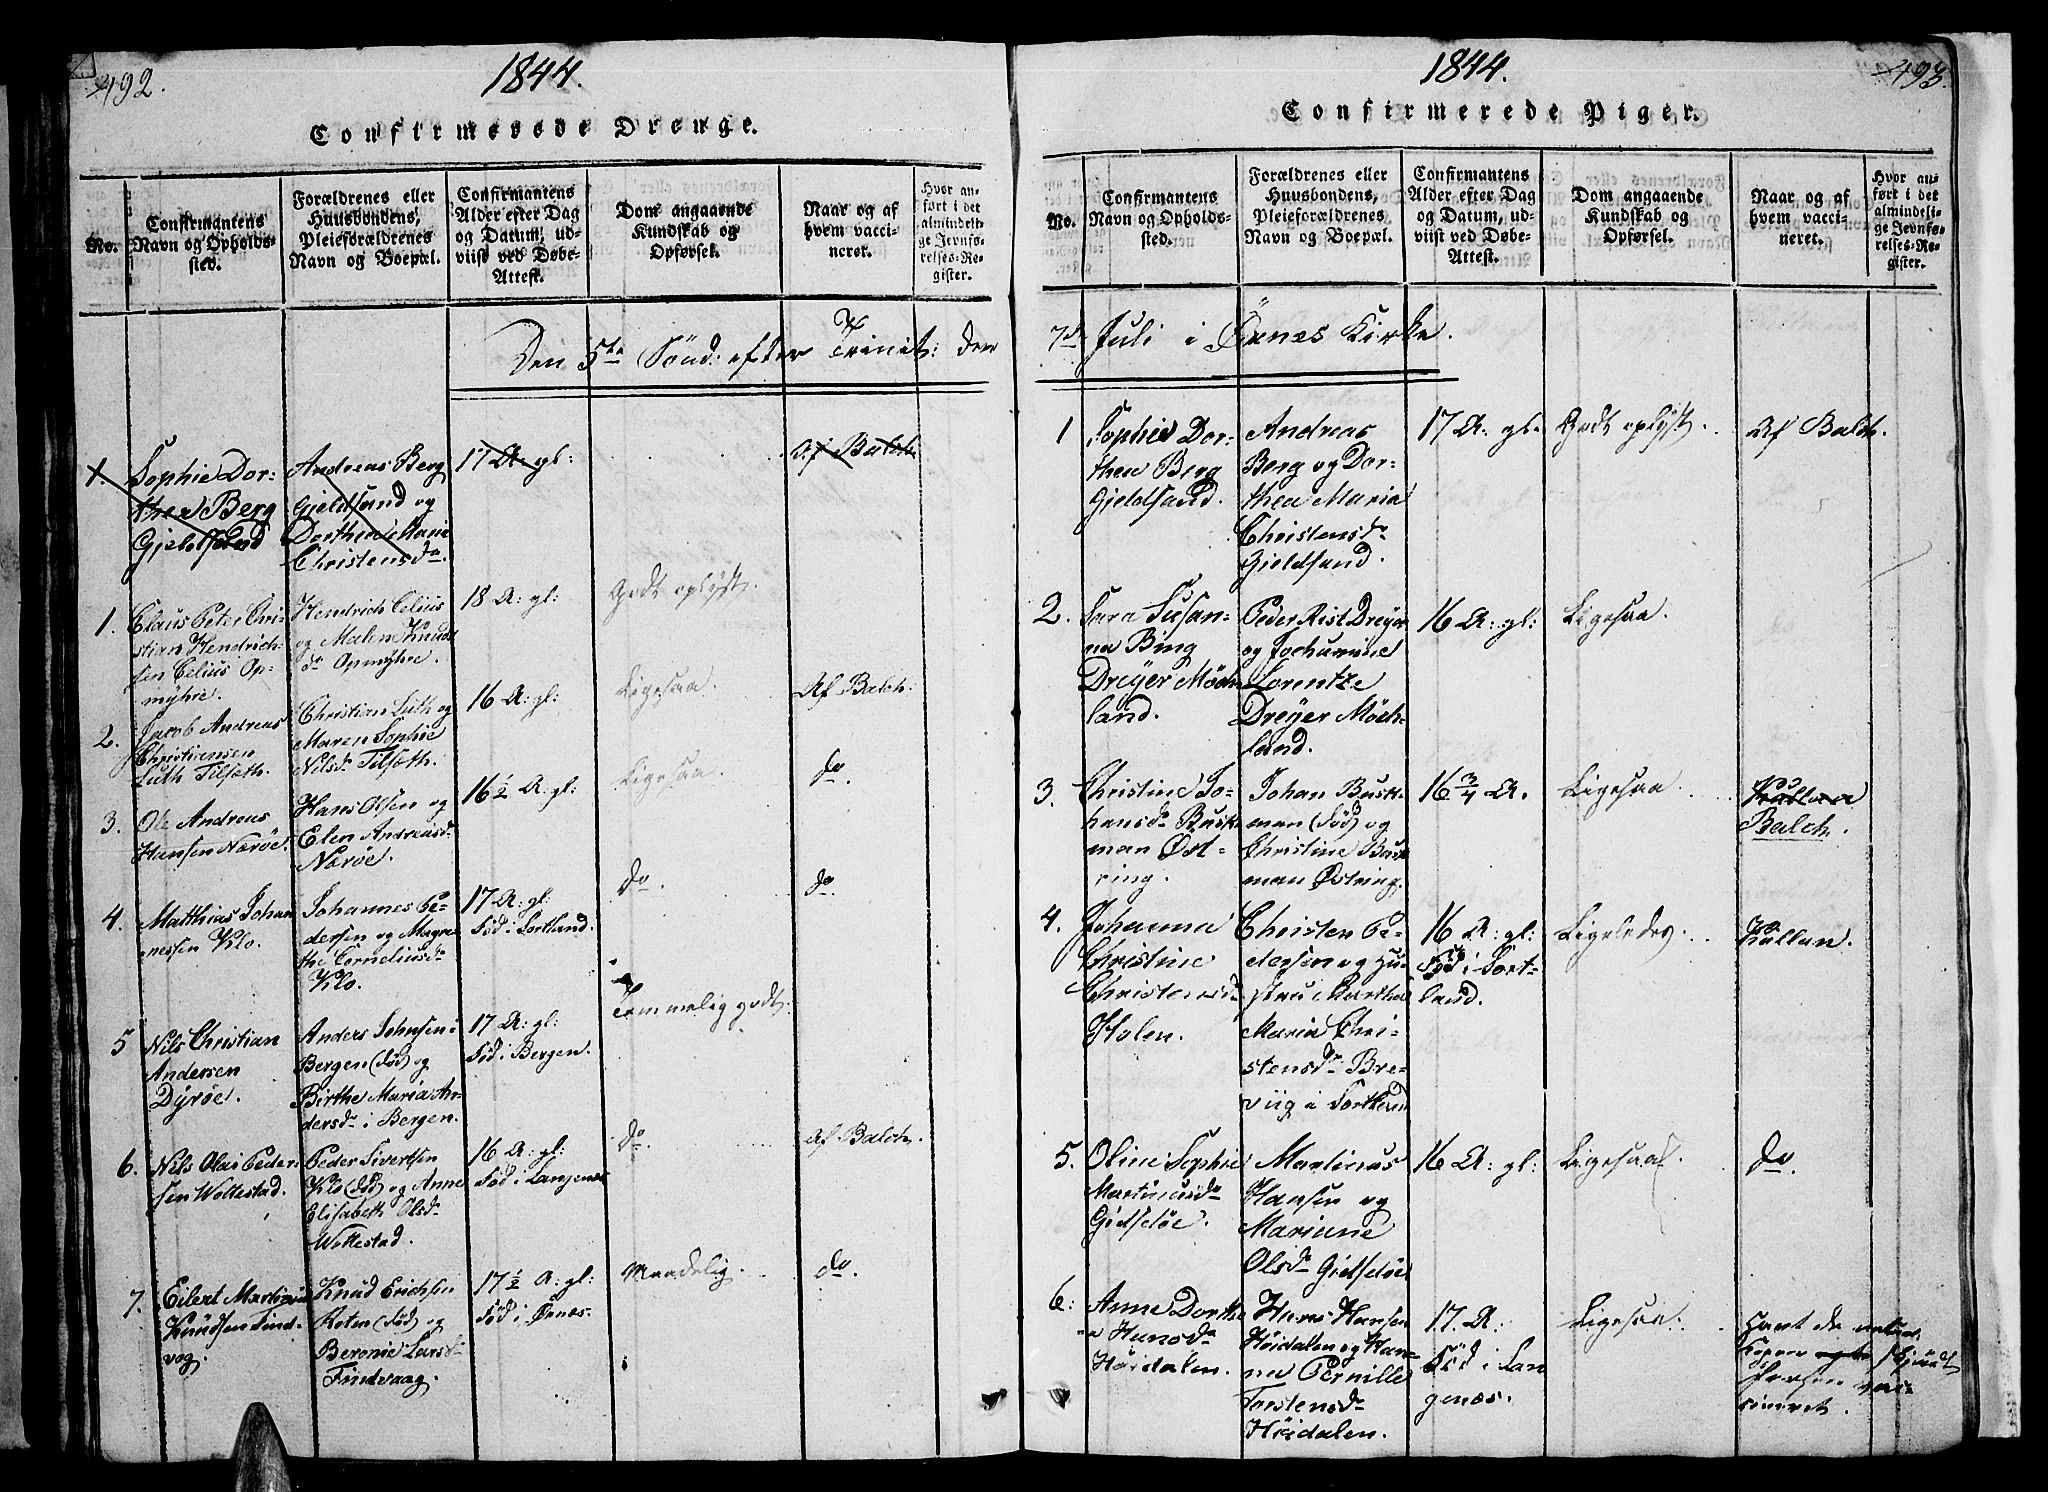 492.
1844.
Confirmerede Drenge.
No.
Confirmantens
Navn og Opholds-
sted.
Forældrenes eller
Huusbondens,
Pleieforældrenes
Navn og Boepæl.
Confirmantens
Alder efter Dag
og Datum, ud-
viist ved Døbe-
Attest.
Dom angaaende
Kundskab og
Opførsel.
Naar og af
hvem vacci-
neret.
Hvor an-
ført i det
almindeli-
ge Jevnfø-
relses-Re-
gister.
Den 5te Sønd: efter Trinit: den
1.
Sophie Dor-
thea Berg
Gjeldsand
Andreas Berg
Gjeldsand og
Dorthea Marie
Christensdr.
17 A: gl:
Af Balch
1.
Claus Peter Chri-
stian Hendrich-
sen Celius Op-
myhre.
Hendrich Celius
og Malen Knuds
dr Opmyhre.
18 A: gl:
Godt oplyst.
2.
Jacob Andreas
Christiansen
Luth Tilsæth.
Christian Luth og
Maren Sophie
Nilsdr Tilsæth.
16 A: gl:
Ligesaa.
Af Balch:
3.
Ole Andreas
Hansen Narøe.
Hans Olsen og
Elen Andreasdr
Narøe.
16½ A: gl:
Ligesaa.
do.
4.
Matthias Johan
nessen Klo.
Johannes Pe-
dersen og Magre-
the Corneliusdr
Klo.
17 A: gl:
Fød i Sortland.
do.
do.
5
Nils Christian
Andersen
Dyrøe.
Anders Johnsen i
Bergen (død) og
Birthe Maria An-
dersdr i Bergen.
17 A: gl:
Fød i Bergen.
Temmelig godt.
6.
Nils Olai Peder-
sen Wottestad.
Peder Sivertsen
Klo (død) og Anne
Elisabeth Olsdr
Wottestad.
16 A: gl:
Fød i Langenæs
do.
Af Balch.
7.
Eilert Martinus
Knudsen Find-
vog.
Knud Erichsen
Roten (død) og
Beronie Larsdr
Findvaag.
17½ A: gl:
Fød i Öxnæs.
Maadelig.
do.
1844.
493.
Confirmerede Piger.
No.
Confirmantens
Navn og Opholds-
sted.
Forældrenes eller
Huusbondens,
Pleieforældrenes
Navn og Boepæl.
Confirmantens
Alder efter Dag
og Datum, ud-
viist ved Døbe-
Attest.
Dom angaaende
Kundskab og
Opførsel.
Naar og af
hvem vacci-
neret.
Hvor an-
ført i det
almindeli-
ge Jevnfø-
relses-Re-
gister.
7de Juli i Öxnes Kirke.
1
Sophie Dor-
thea Berg
Gjeldsand.
Andreas
Berg og Dor-
thea Maria
Christensdr
Gjeldsand.
17 A: gl:
Godt oplyst.
Af Balch.
2.
Sara Susan-
na Bing
Dreyer Möch-
land.
Peder Rist Dreyer
og Jochumine
Lorentze
Dreyer Möch-
land.
16 A: gl:
Ligesaa.
3.
Christine Jo-
hansdr Busk-
man Øst-
ring.
Johan Busk-
man (død) og
Christine Busk
man Østring.
16¾ A.
Ligesaa
Balch.
4.
Johanna
Christine
Christensdr
Holen.
Christen Pe-
dersen og Hu-
stru Marthe
Maria Chri-
stensdr Bre-
viig i Sortland
16 A: gl:
Fød i Sort-
land.
Ligeledes.
Kullan.
5.
Oline Sophie
Martinusdr
Gidsløe.
Martinus
Hansen og
Mariene
Olsdr Gidsløe
16 A: gl:
Ligesaa.
do.
6:
Anne Dorthe
a Hansdr
Höidalen.
Hans Hansen
Höidalen og Han-
na Pernille
Torstensdr
Höidalen.
17. A:
Fød i Lan
genæs.
Ligesaa.
Havt de natur
Kopper